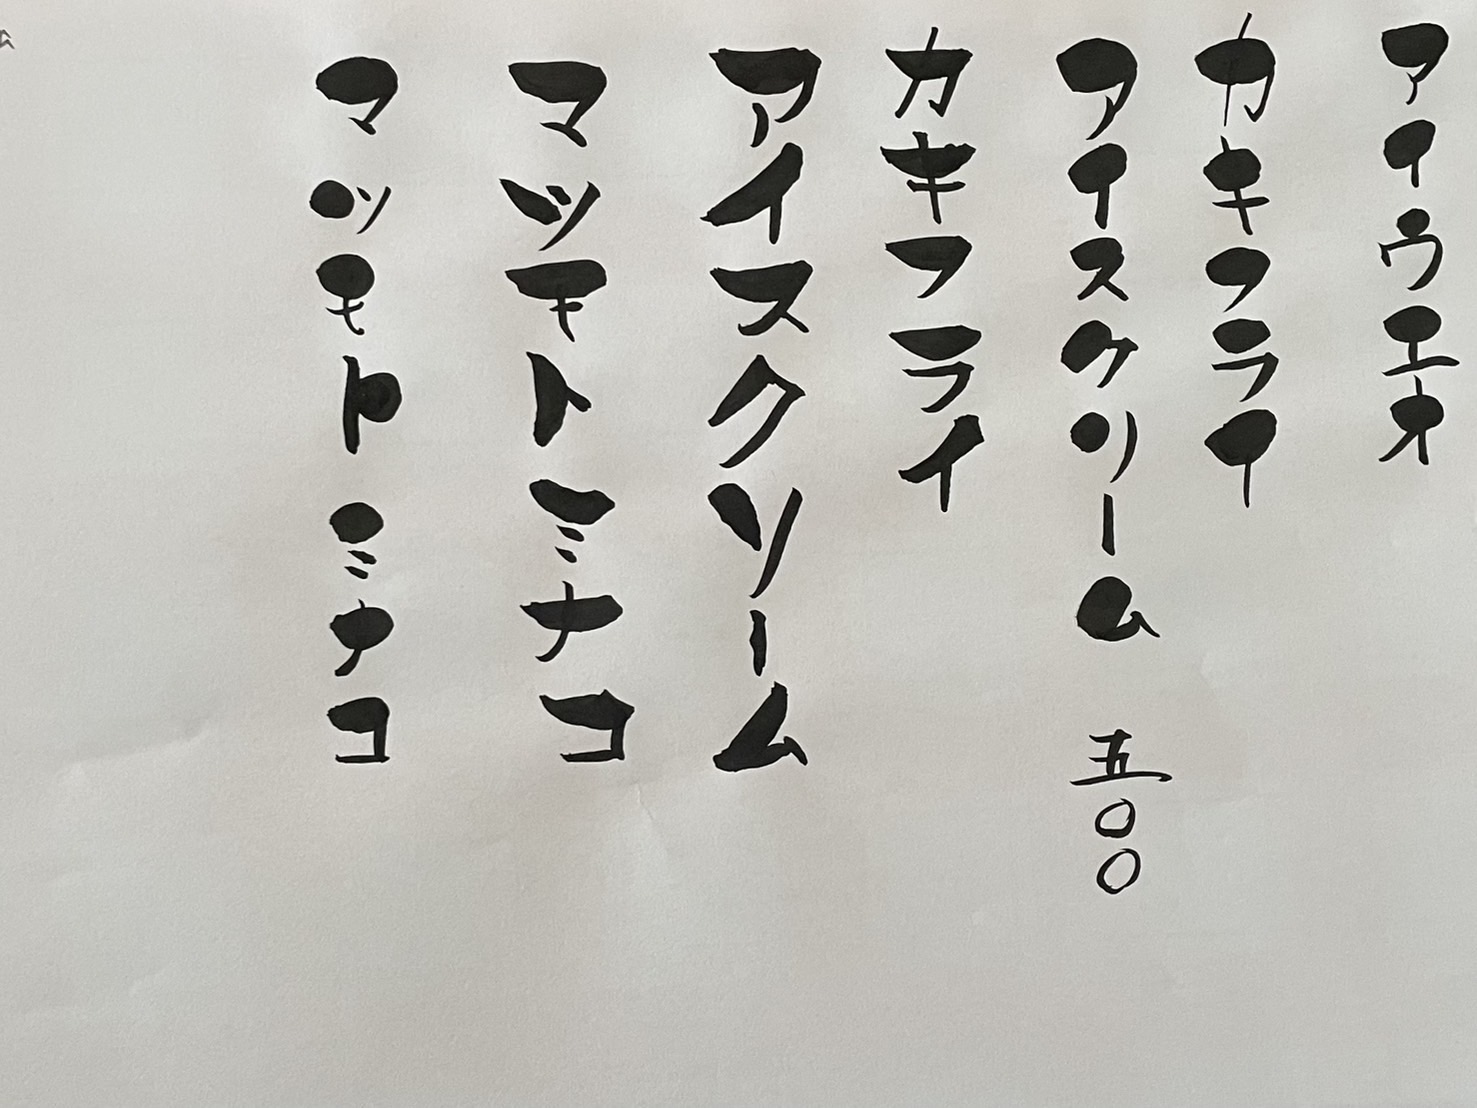 アイウエオ
カキフライ
アイスクリーム 五〇〇
カキフライ
アイスクソーム
マツモト ミナコ
マツモト ミナコ